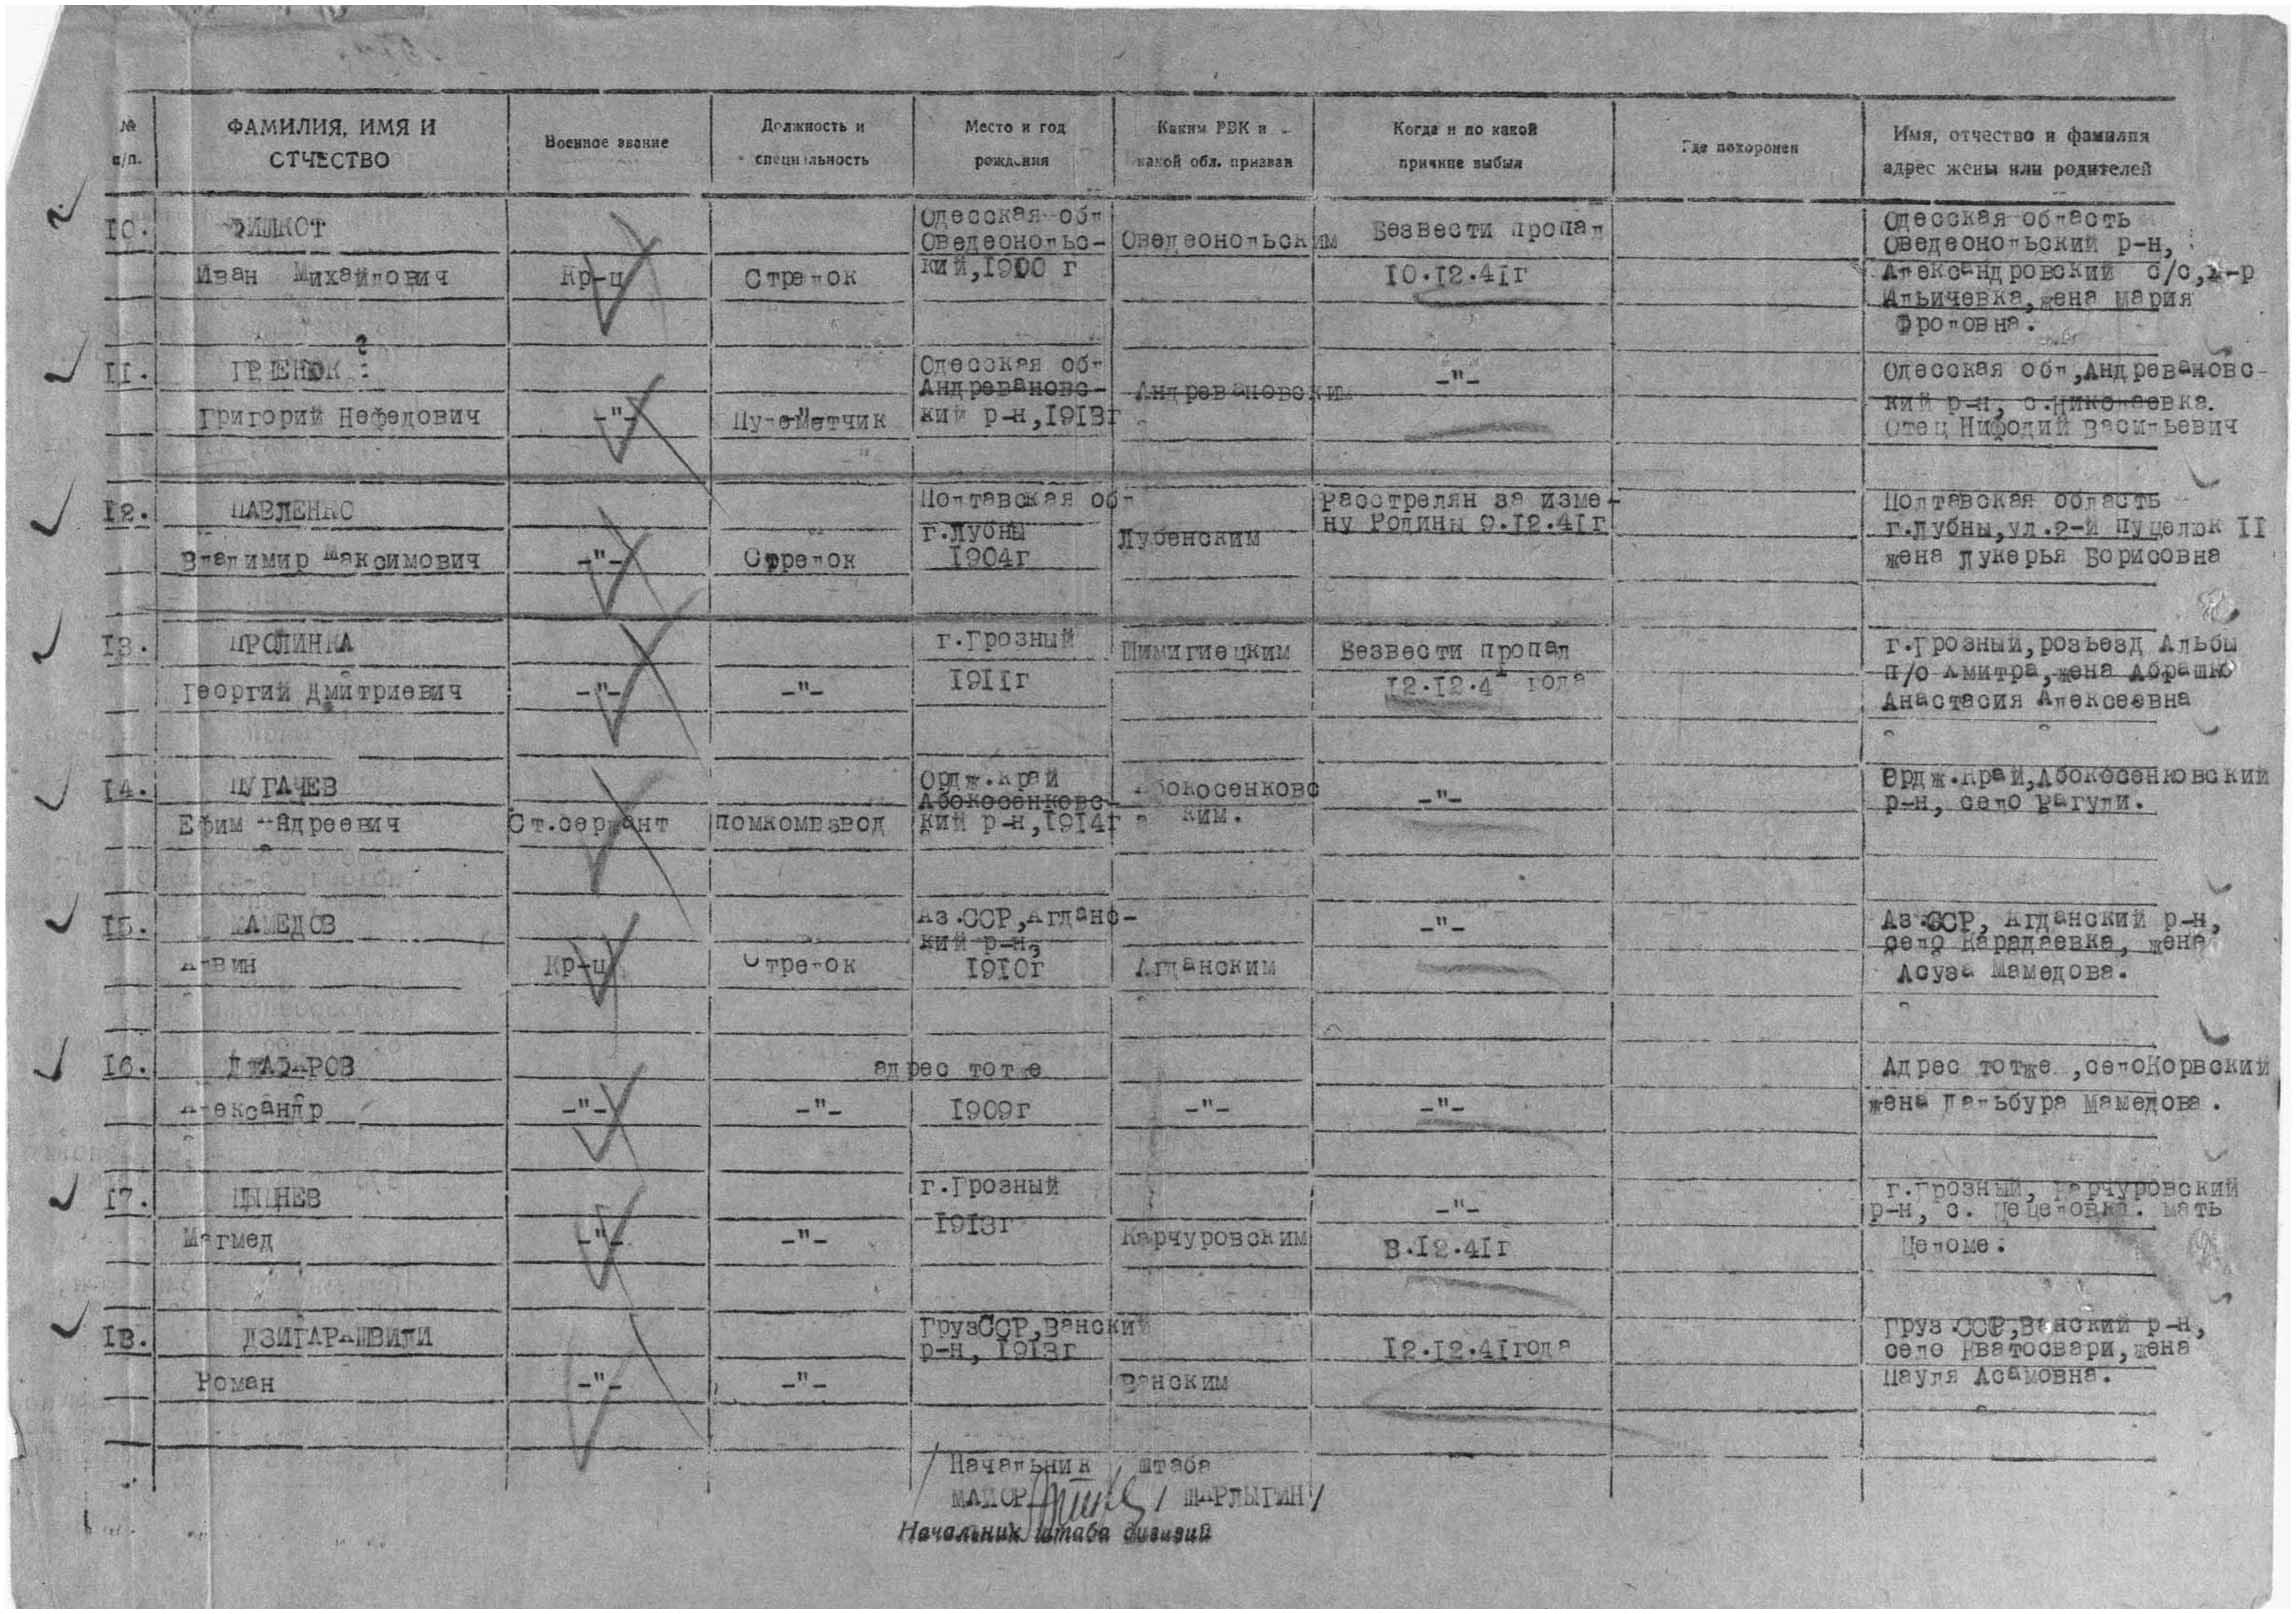 № п/п.
ФАМИЛИЯ, ИМЯ И ОТЧЕСТВО
Военное звание
Должность и специальность
Место и год рождения
Каким РВК и какой обл. призван
Когда и по какой причине выбыл
Где похоронен
Имя, отчество и фамилия адрес жены или родителей
10.
Иван Михайлович
Кр-ц
Стрелок
Одесская обл
Оведеонольс-
кий, 1900 г
Оведеонольским
Безвести пропал
10.12.41г
Одесская область
Оведеонольский р-н,
Александровский с/с,
Ильичевка, жена Мария
Фроловна.
11.
Григорий Нефедович
-"-
Пулеметчик
Одесская обл
Андревановс-
кий р-н, 1913г
Андревановским
-"-
Одесская обл, Андревановс-
кий р-н, с.Николаевка.
Отец Нифодий Васильевич
12.
ПАВЛЕНКО
Владимир Максимович
-"-
Стрелок
Полтавская обл
г.Лубны
1904г
Лубенским
Расстрелян за изме-
ну Родины 9.12.41г
Полтавская область
г.Лубны, ул.2-й Пуцелюк II
жена Лукерья Борисовна
13.
ПРОЛИНКА
Георгий Дмитриевич
-"-
-"-
г.Грозный
1911г
Шимигиецким
Безвести пропал
12.12.41 года
г.Грозный, розъезд Альбы
п/о Амитра, жена Абрашко
Анастасия Алексеевна
14.
ПУГАЧЕВ
Ефим Андреевич
Ст.сержант
помкомвзвод
Ордж.край
Абокосенковс-
кий р-н, 1914г
Абокосенковс
ким.
-"-
Ордж.край, Абокосенковский
р-н, село Рагули.
15.
МАМЕДОВ
Алвин
Кр-ц
Стрелок
Аз.ССР, Агданс-
кий р-н,
1910г
Агданским
-"-
Аз.ССР, Агданский р-н,
село Карадаевка, жена
Асуза Мамедова.
16.
ДЖАФАРОВ
Александр
-"-
-"-
адрес тотже
1909г
-"-
-"-
Адрес тотже, село Корвский
жена Дальбура Мамедова.
17.
Магмед
-"-
-"-
г.Грозный
1913г
Карчуровским
-"-
8.12.41г
г.Грозный, Карчуровский
р-н, с. Цецеловка. мать
Целоме.
18.
ДЗИГАРАШВИЛИ
Роман
-"-
-"-
ГрузССР, Ванский
р-н, 1913г
Ванским
12.12.41года
Груз.ССР, Ванский р-н,
село Кватосвари, жена
Пауля Асамовна.
Начальник штаба
МАЙОР / ШАРЛЫГИН/
Начальник штаба дивизии